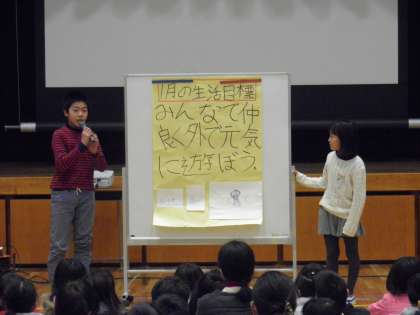 11月の生活目標
みんなで仲
良く外で元気
に遊ぼう。